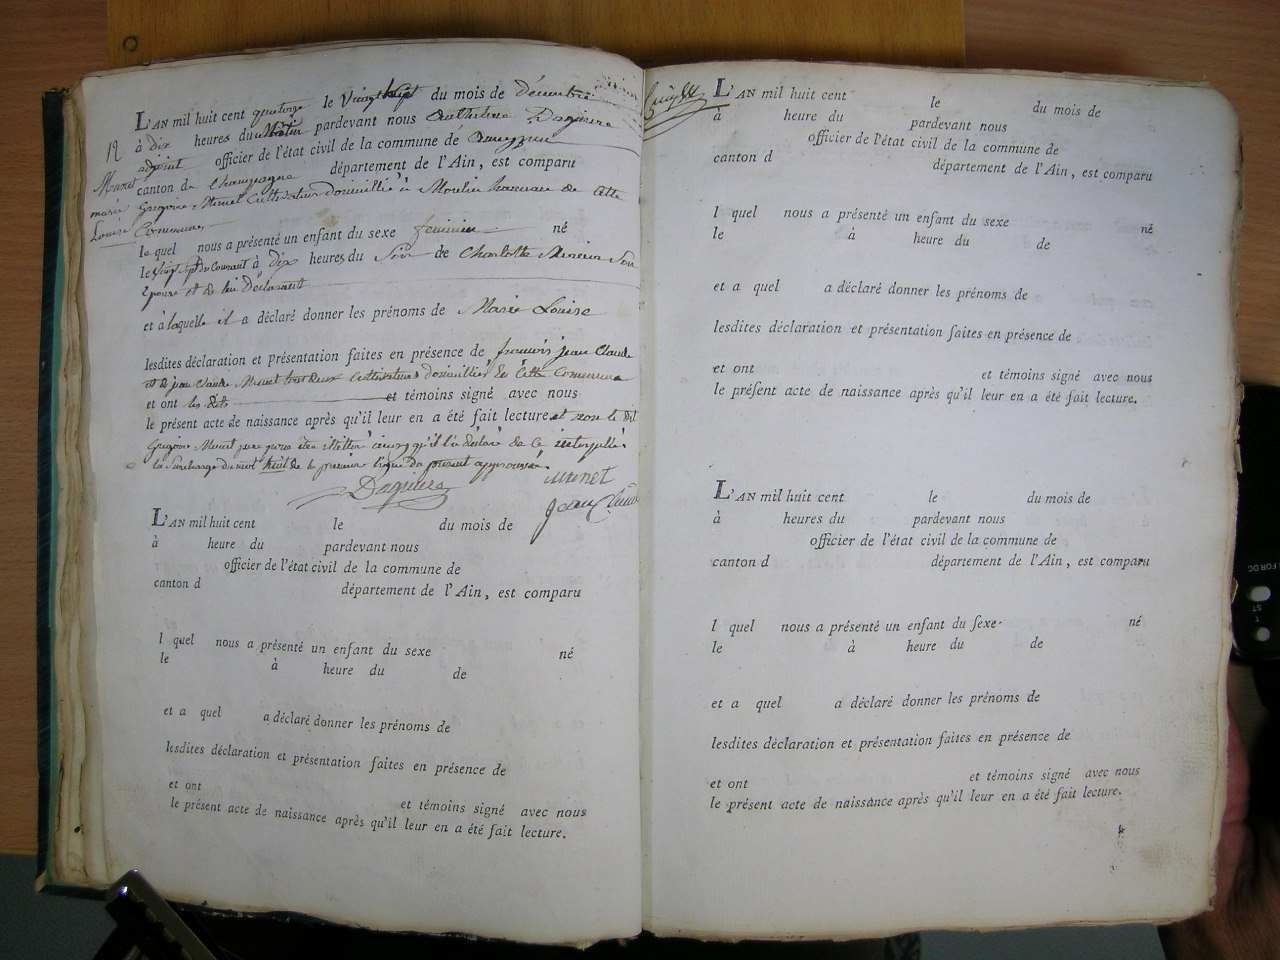 L'AN mil huit cent quatorze le Vingt huit du mois de décembre
12
à dix heures du Matin pardevant nous
adjoint officier de l'état civil de la commune de
Munet
canton de Champagne département de l'Ain, est comparu
marie
Gregoire Munet Cultivateur Domicillié à Moulin de cette
Louise
Commune
lequel nous a présenté un enfant du sexe feminin né
le vingt sept du Courant à dix heures du Soir de Charlotte Son
Epouse et de lui Déclarant
et à laquelle il a déclaré donner les prénoms de Marie Louise
lesdites déclaration et présentation faites en présence de françois jean Claude
et de jean Claude Munet tous deux cultivateurs domicilliés de cette Commune
et ont les dits et témoins signé avec nous
le présent acte de naissance après qu'il leur en a été fait lecture et non le dit
Gregoire Munet pour ne etre qu'il l'a déclaré de ce interpellé.
la Surcharge du mot huit de la premiere ligne du present approuvée.
munet
jean Claude
L'AN mil huit cent le du mois de
à heure du pardevant nous
officier de l'état civil de la commune de
canton d département de l'Ain, est comparu
l quel nous a présenté un enfant du sexe né
le à heure du de
et a quel a déclaré donner les prénoms de
lesdites déclaration et présentation faites en présence de
et ont et témoins signé avec nous
le présent acte de naissance après qu'il leur en a été fait lecture.
L'AN mil huit cent le du mois de
à heure du pardevant nous
officier de l'état civil de la commune de
canton d département de l'Ain, est comparu
l quel nous a présenté un enfant du sexe né
le à heure du de
et a quel a déclaré donner les prénoms de
lesdites déclaration et présentation faites en présence de
et ont et témoins signé avec nous
le préſent acte de naissance après qu'il leur en a été fait lecture.
L'AN mil huit cent le du mois de
à heures du pardevant nous
officier de l'état civil de la commune de
canton d département de l'Ain, est comparu
l quel nous a présenté un enfant du ſexe né
le à heure du de
et a quel a déclaré donner les prénoms de
lesdites déclaration et présentation faites en présence de
et ont et témoins signé avec nous
le présent acte de naissance après qu'il leur en a été fait lecture.